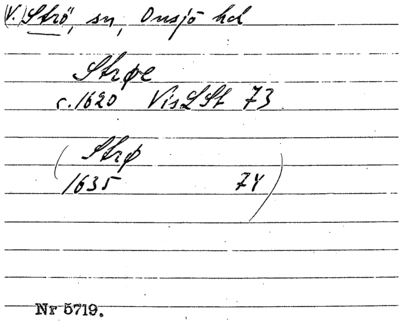 (V.) Strö, sn, Onsjö hd
Strøe
c. 1620 VisLSt 73
(Strø
1635 74)
Nr 5719.